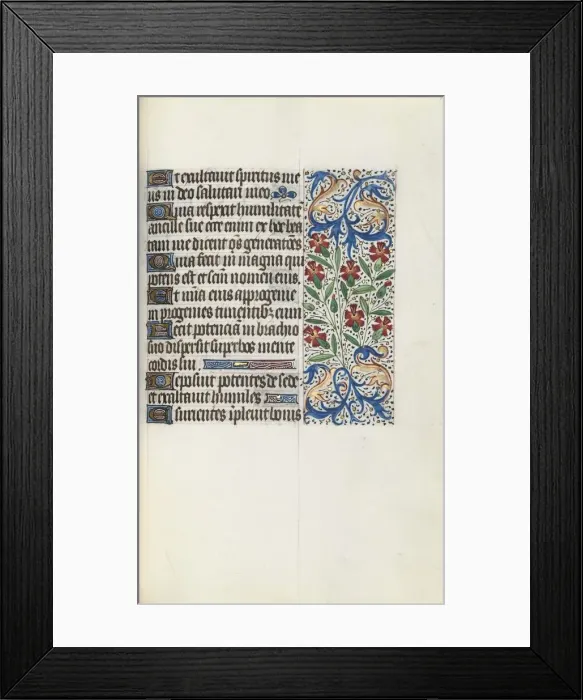 Et exultauit spiritus me
us in deo salutari meo.
Quia respexit humilitatē
ancille sue ecce enim ex hoc bea
tam me dicent oēs generatiōes
Quia fecit m̄ magna qui
potens est et sc̄m nomen eius.
Et mīa eius a progenie
in progenies timentibus eum
Fecit potenciā in brachio
suo dispersit superbos mente
cordis sui.
Deposuit potentes de sede
et exaltauit humiles
Esurientes īpleuit bonis